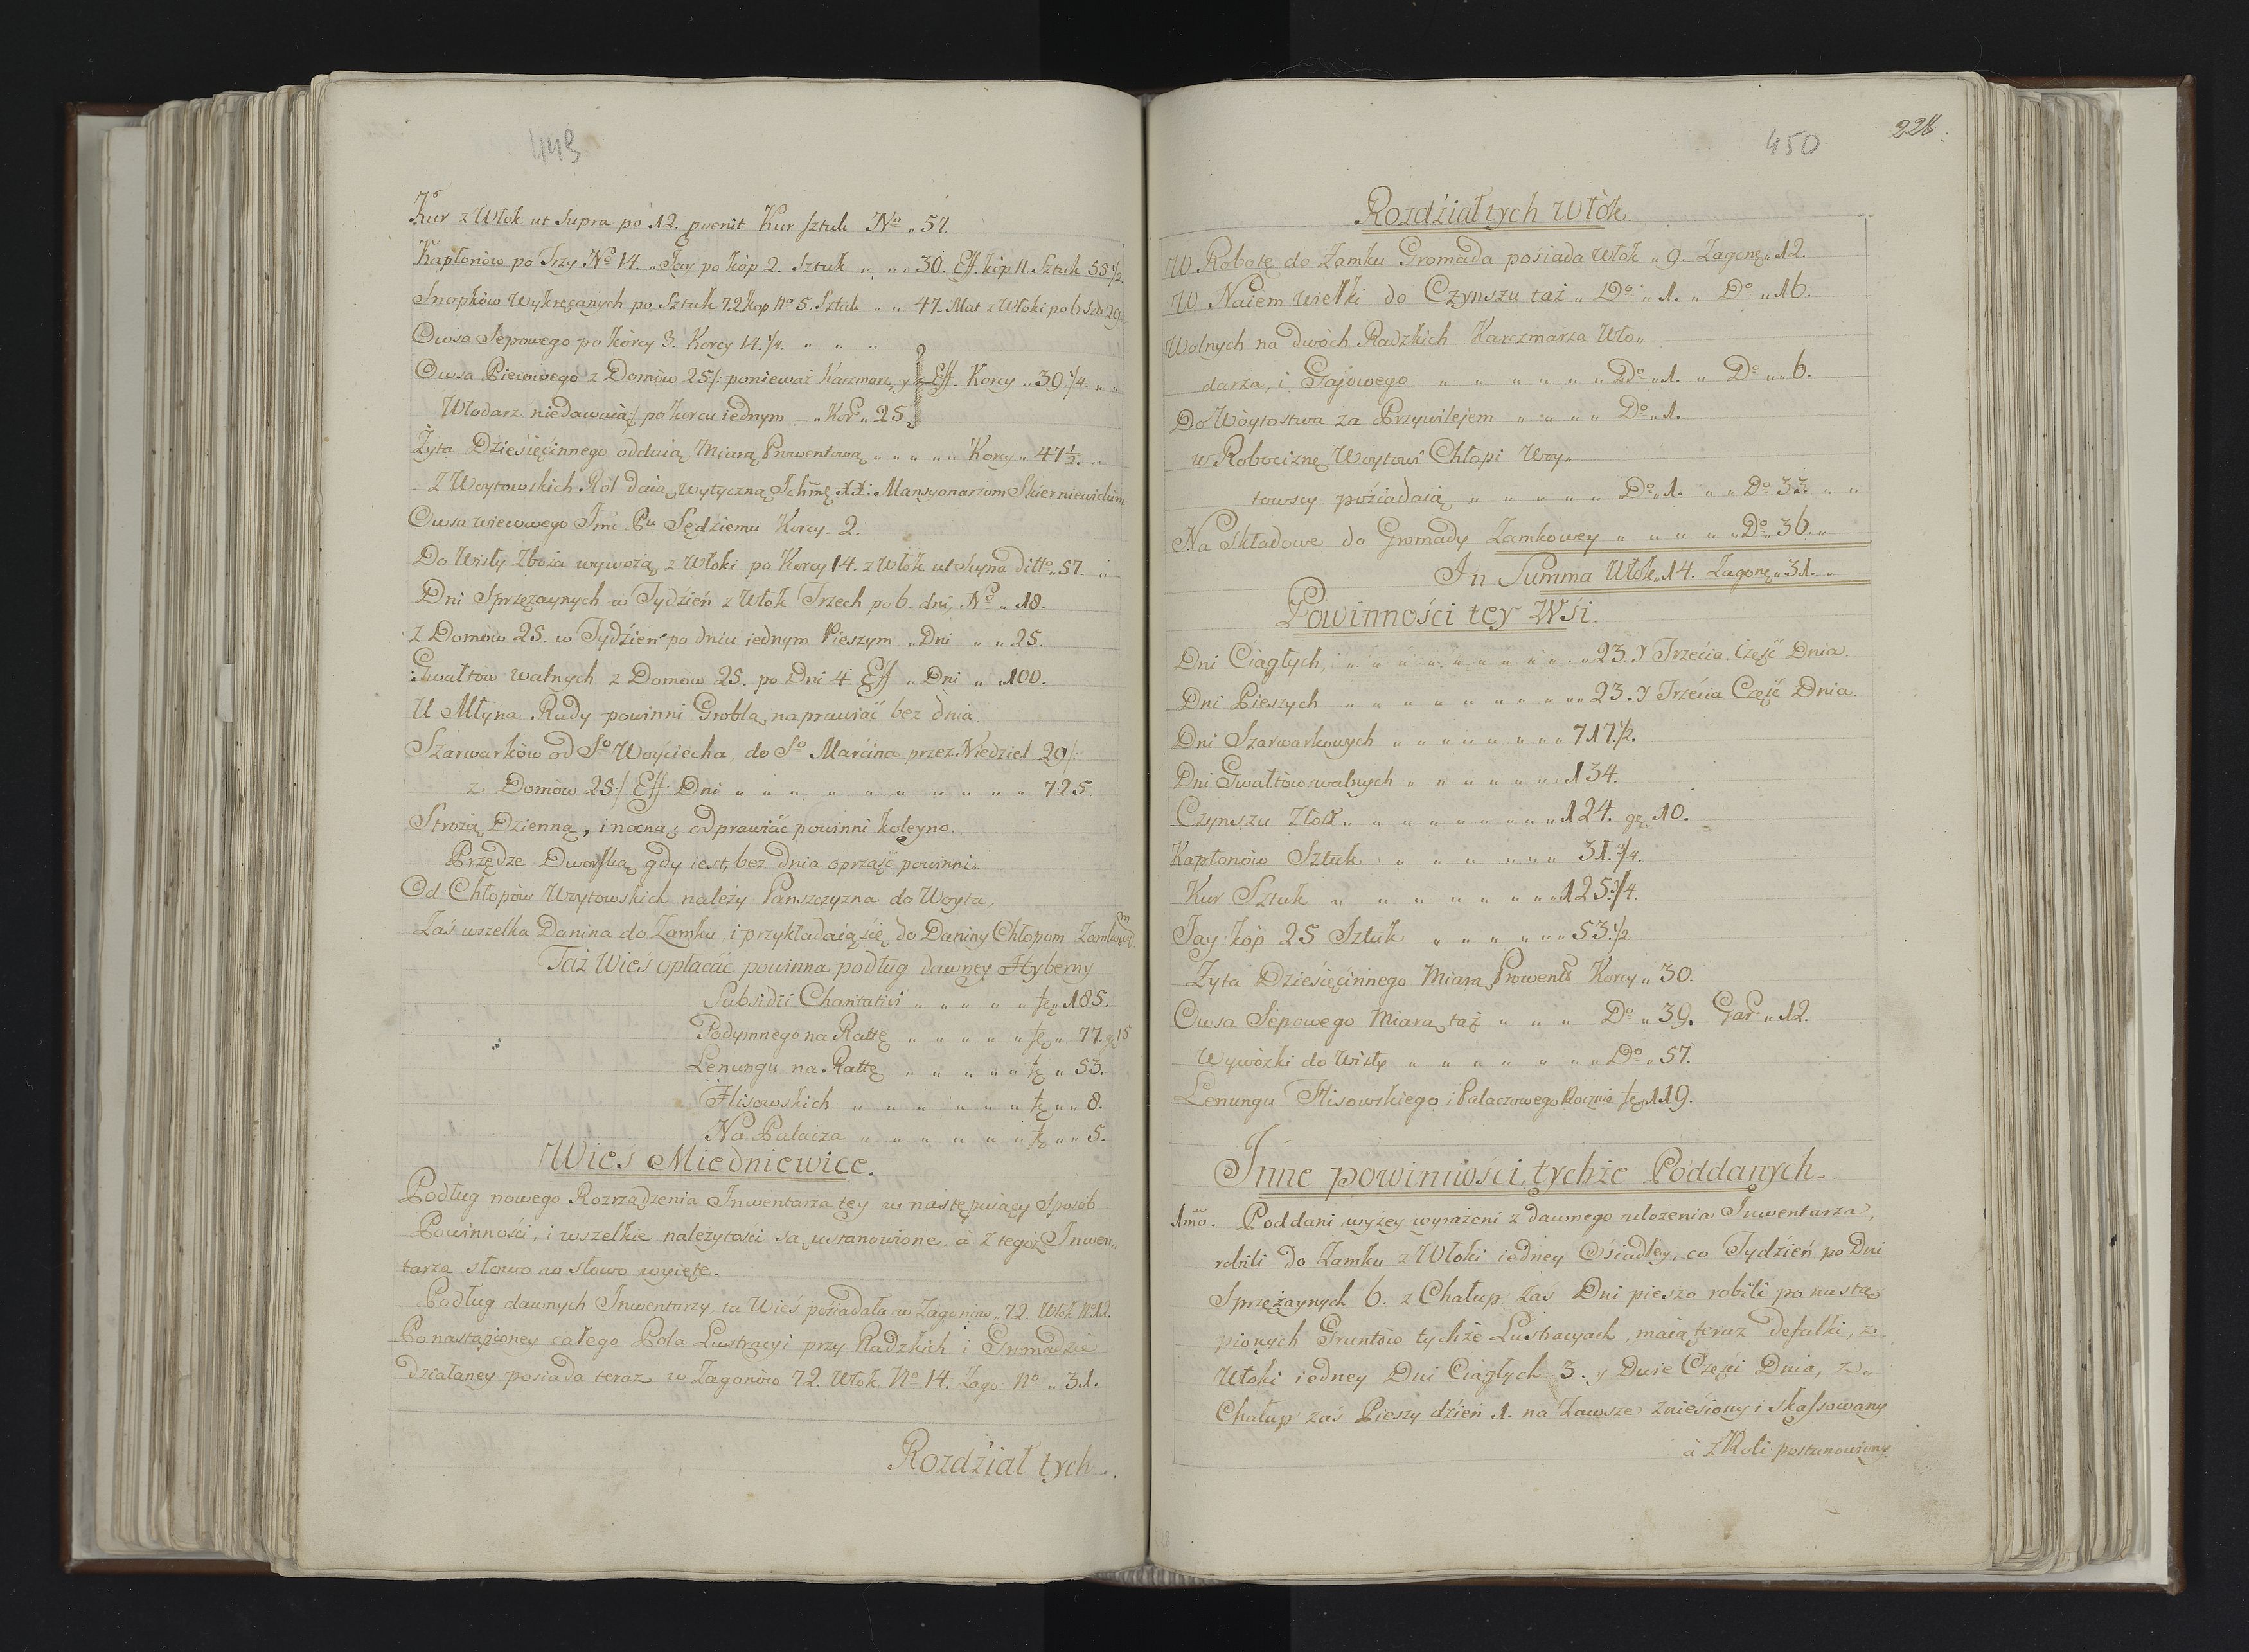 449
Kur z Włok ut Supra po 12. pvenit Kur sztuk No „ 57.
Kapłonów po Trzy No 14. „ Jay po kop 2. Sztuk „ „ „ 30. Eff. kóp 11. Sztuk 55 1/2
Snopków Wykręcanych po Sztuk 72 kop No 5. Sztuk „ „ 47. Mat z Włoki po 6
Owsa Sepowego po korcy 3. Korcy 14. 1/4. „ „ „
Owsa Piecowego z Domów 25/: ponieważ Karczmarz, y Eff. Korcy „ 30. 1/4. „ „
Włodarz niedawaią:/ po korcu iednym „ Kor „ 25.
Żyta Dziesięcinnego oddaią Miarą Prowentową „ „ „ „ „ Korcy „ 47 1/2. „
Z Woytowskich Ról daią wytyczną Ichmę XX: Mansyonarzom Skierniewickim
Owsa wiecowego Jmć Pu Sędziemu Korcy. 2.
Do Wisły Zboża wywożą, z Włoki po Korcy 14. z Włok ut Supra ditto „ 57. „
Dni Sprzęzaynych w Tydzień z Włok Trzech po 6. dni, No „ 18.
Z Domów 25. w Tydzień po dniu iednym Pieszym „ Dni „ „ 25.
Gwałtów walnych z Domów 25. po Dni 4. Eff „ Dni „ „ 100.
U Młyna Rudy powinni Groblą naprawiać bez dnia.
Szarwarków od So Woyciecha, do So Marcina przez Niedziel 29/:
z Domów 25:/ Eff: Dni „ „ „ „ „ „ „ „ „ 725.
Strożą Dzienną, i nocną; odprawiać powinni koleyno.
Przędze Dworską gdy iest, bez dnia oprząść powinni.
Od Chłopów Woytowskich należy Panszczyzna do Woyta,
Zaś wszelka Danina do Zamku i przykładaią się do Daniny Chłopom Zamkowym
Taż Wieś opłacać powinna podług dawney Hyberny
Subsidii Charitativi „ „ „ „ „ tę „ 185.
Podymnego na Rattę „ „ „ „ „ tę „ 77. g 15
Lenungu na Rattę „ „ „ „ „ tę „ 53.
Flisowskich „ „ „ „ „ „ tę „ „ 8.
Na Palacza „ „ „ „ „ „ tę „ „ 5.
Wieś Miedniewice.
Podług nowego Rozrządzenia Inwentarza tey w następuiący Sposób
Powinności, i wszelkie należytości są ustanowione, à z tegoż Inwen„
tarza słowo w słowo wyięte.
Podług dawnych Inwentarzy, ta Wieś posiadała w Zagonów „ 72. Włók No 12.
Po nastąpioney całego Pola Lustracyi przy Radzkich i Gromadzie
działaney posiada teraz w Zagonów 72. Włók No 14. Zago. No „ 31.
Rozdział tych.
450
228.
Rozdział tych Włók
W Robotę do Zamku Gromada posiada Włok „ 9. Zagonę „ 12.
W Naiem wielki do Czynszu taż „ Do „ 1. „ Do „ 16.
Wolnych na dwóch Radzkich Karczmarza Wło„
darza, i Gajowego „ „ „ „ „ „ Do „ 1. „ Do „ „ 6.
Do Wóytostwa za Przywilejem „ „ „ „ Do „ 1.
w Robociznę Woytowi Chłopi Woy„
towscy posiadaią „ „ „ „ „ Do „ 1. „ „ Do 33. „ „
Na Składowe do Gromady Zamkowey „ „ „ „ „ Do „ 36. „
In Summa Włok „ 14. Zagonę „ 31. „
Powinności tey Wśi.
Dni Ciągłych „ „ „ „ „ „ „ „ „ „ 23. y Trzecia Część Dnia.
Dni Pieszych „ „ „ „ „ „ „ „ „ „ 23. y Trzecia Część Dnia.
Dni Szarwarkowych „ „ „ „ „ „ „ „ 717 1/2.
Dni Gwałtów walnych „ „ „ „ „ „ „ 134.
Czynszu Złotł „ „ „ „ „ „ „ „ „ „ 124. gę 10.
Kapłonów Sztuk „ „ „ „ „ „ „ 31. 3/4.
Kur Sztuk „ „ „ „ „ „ „ „ „ 125. 3/4.
Jay kóp 25 Sztuk „ „ „ „ „ „ 53. 1/2
Żyta Dziesięcinnego Miarą Prowent Korcy „ 30.
Owsa Sepowego Miarą taż „ „ „ Do „ 39. Gar „ 12.
Wywózki do Wisły „ „ „ „ „ „ „ Do „ 57.
Lenungu Flisowskiego i Palaczowego Rocznie tę 119.
Inne powinności, tychże Poddanych.
1mo. Poddani wyżey wyrażeni z dawnego ułożenia Inwentarza,
robili do Zamku z Włoki iedney Ośiadłey, co Tydzień po Dni
Sprzężaynych 6. z Chałup zaś Dni pieszo robili po nastą
pionych Gruntów tychże Lustracyach, maią teraz defalki, z„
Włoki iedney Dni Ciągłych 3. y Dwie Części Dnia, z„
Chałup zaś Pieszy dzień 1. na Zawsze Zniesiony i skassowany
à z Roli postanowiony